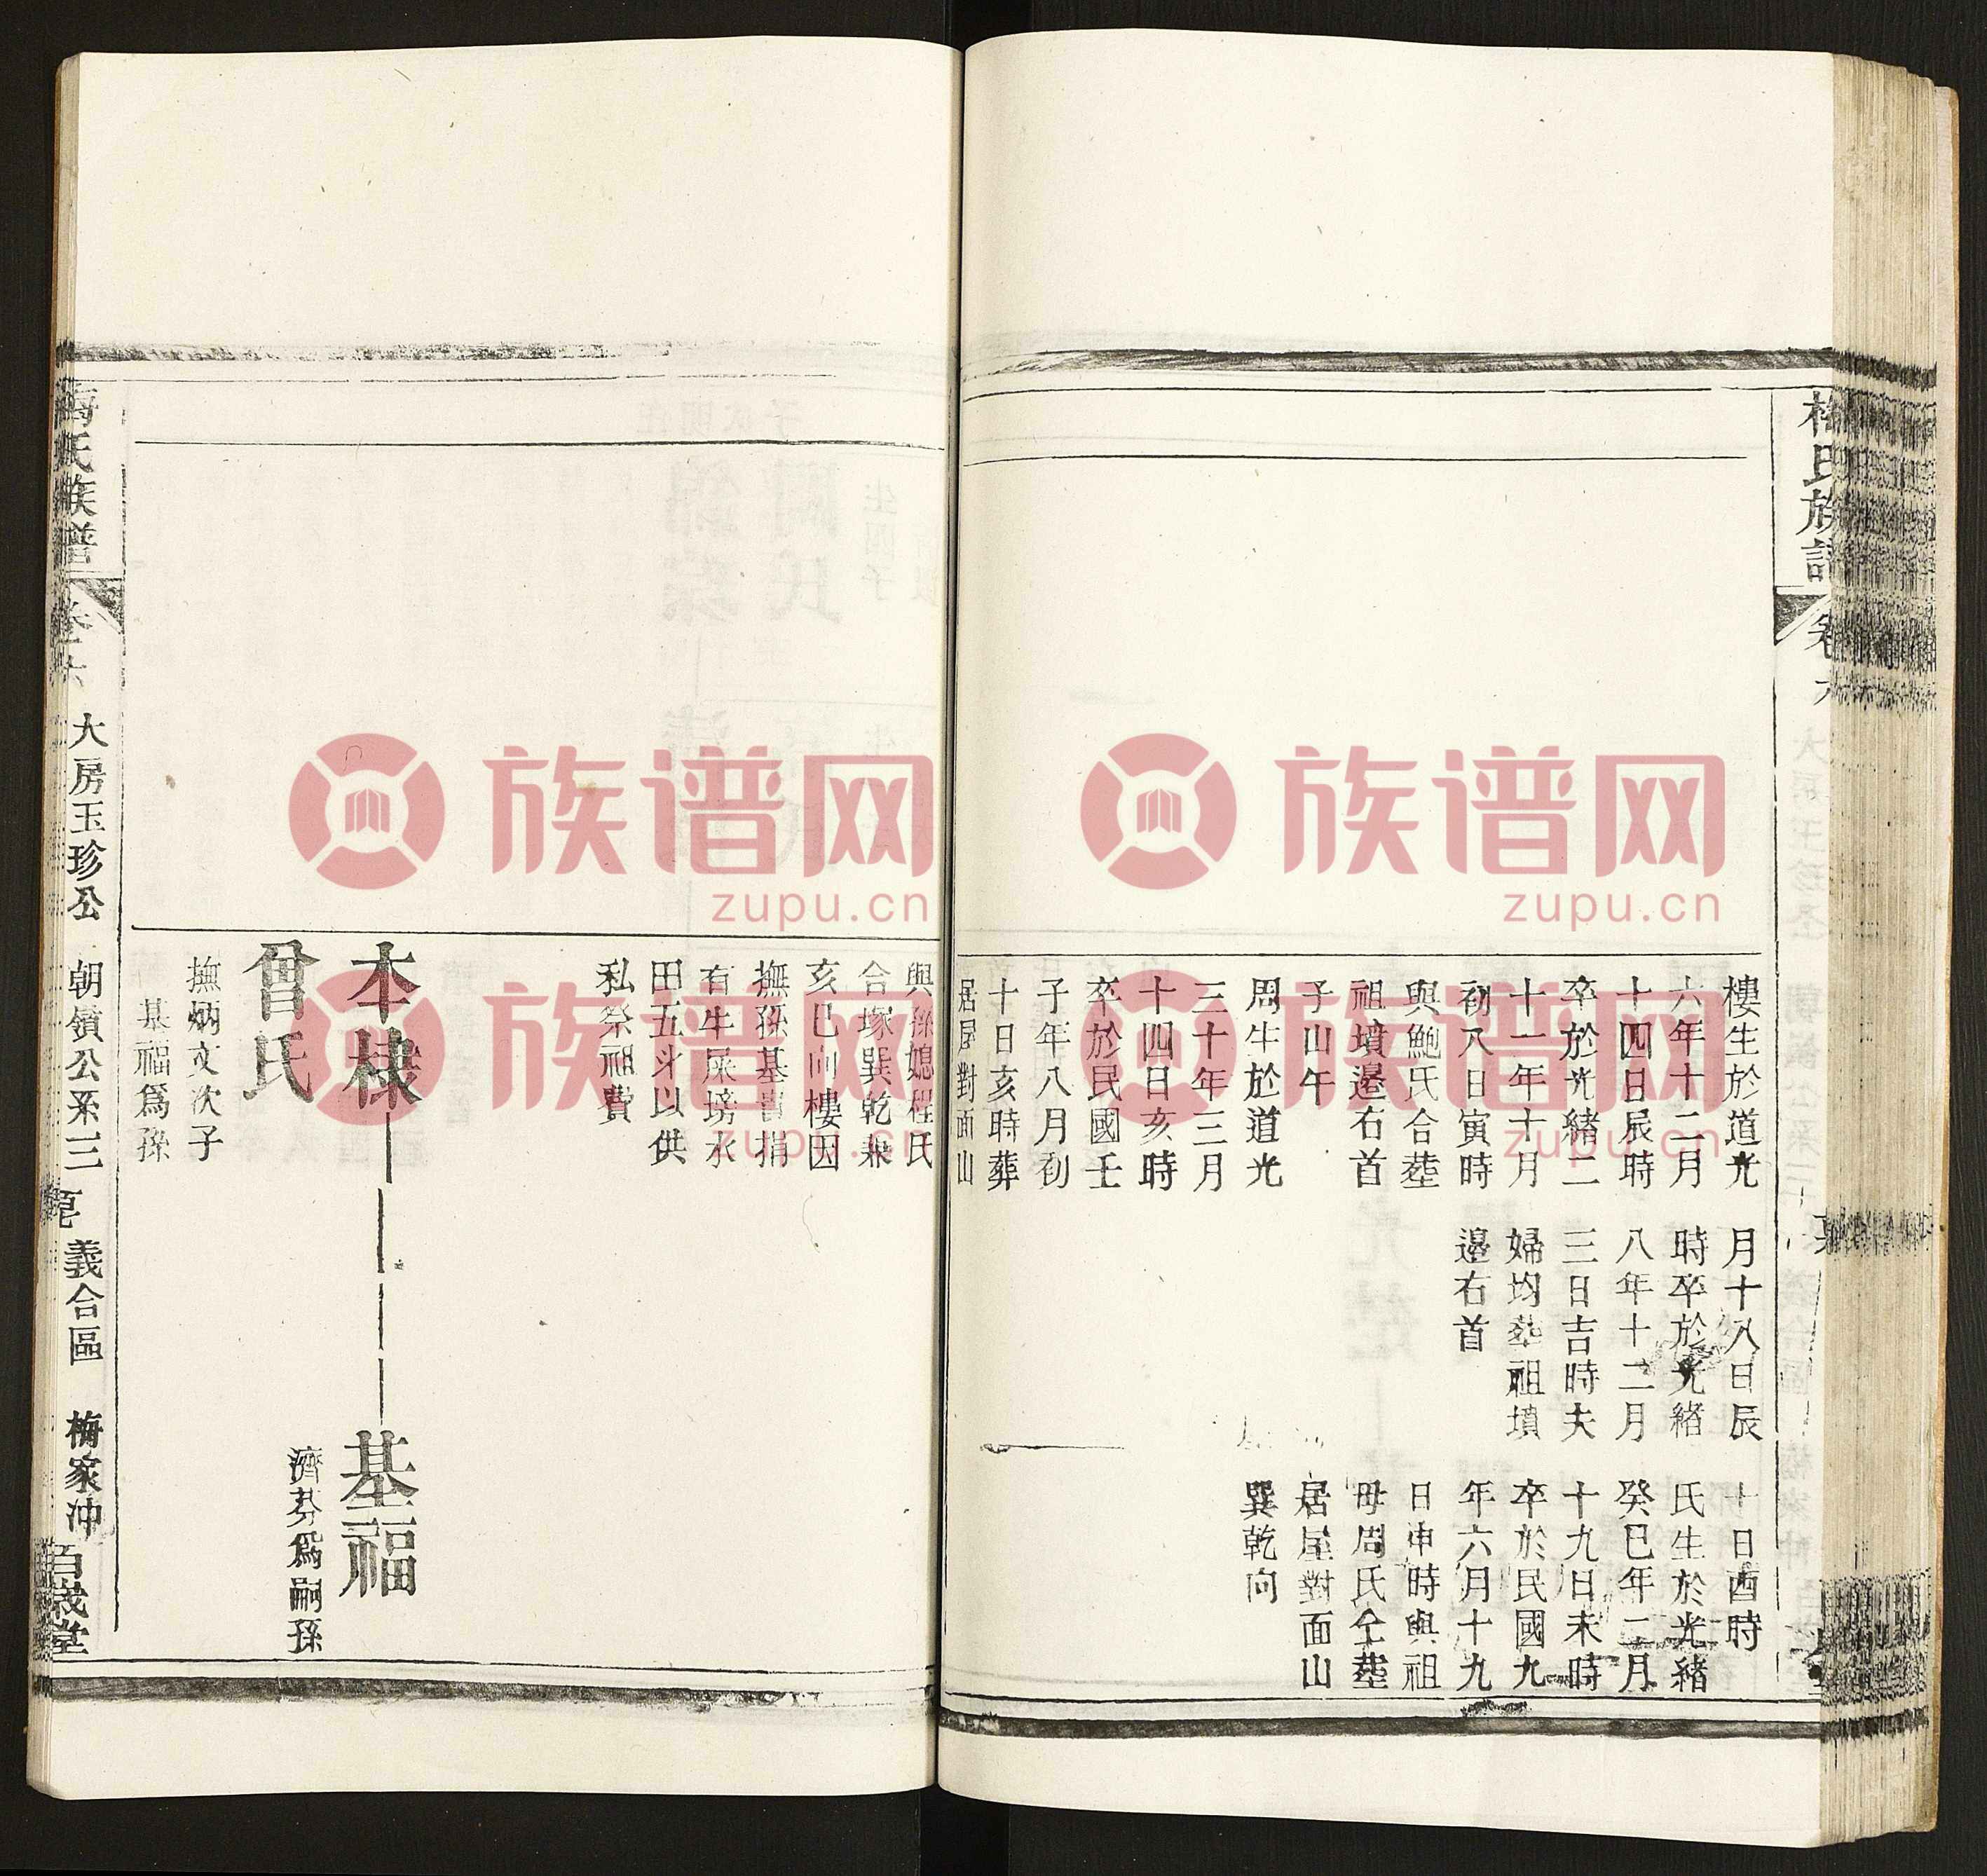 梅氏族譜
卷六
樓生於道光
六年十二月
十四日辰時
卒於光緒二
十一年十月
初八日寅時
與鮑氏合塟
祖墳邉右首
子山午
周生於道光
三十年三月
十四日亥時
卒於民國壬
子年八月初
十日亥時葬
居屋對面山
月十八日辰
時卒於光緒
八年十二月
三日吉時夫
婦均塟祖墳
邉右首
十日酉時
氏生於光緒
癸巳年二月
十九日未時
卒於民國九
年六月十九
日申時與祖
母周氏仝塟
居屋對面山
巽乾向
與孫媳程氏
合塚巽乾兼
亥巳向樓因
撫孫基書捐
有牛屎塝水
田五斗以供
私祭祖費
本棣
基福
濟芬爲嗣孫
曾氏
撫炳文次子
基福爲孫
梅氏族譜
卷六
大房玉珍公
朝鑌公系三
義合區
梅家冲
百歲堂
族谱网
zupu.cn
族谱网
zupu.cn
族谱网
zupu.cn
族谱网
zupu.cn